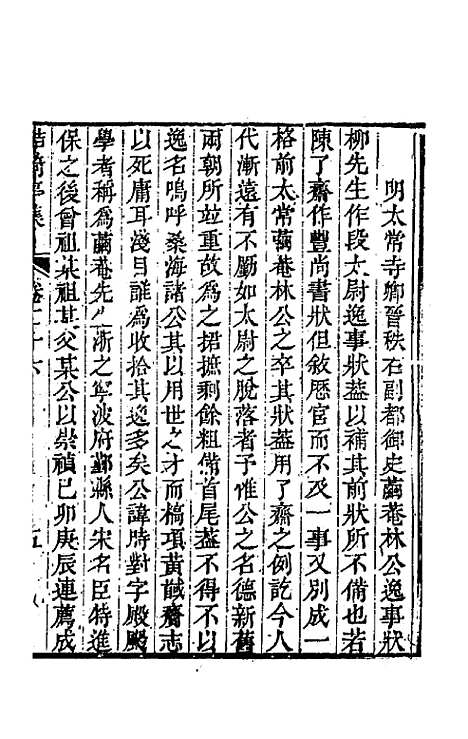 明太常寺卿晉秩右副都御史繭菴林公逸事狀
柳先生作段太尉逸事狀葢以補其前狀所不備也若
陳了齋作豐尚書狀但敘歷官而不及一事又別成一
格前太常繭菴林公之卒其狀葢用了齋之例訖今人
代漸遠有不勝如太尉之脫落者予惟公之名德新舊
兩朝所竝重故爲之捃摭剩餘粗備首尾葢不得不以
逸名嗚呼桑海諸公其以用世之才而槁項黃馘齎志
以死庸耳淺目誰爲收拾其逸多矣公諱時對字殿颺
學者稱爲繭菴先生浙之寧波府鄞縣人宋名臣特進
保之後曾祖某祖某父某公以崇禎己卯庚辰連薦成
鮚埼亭集 卷二十六